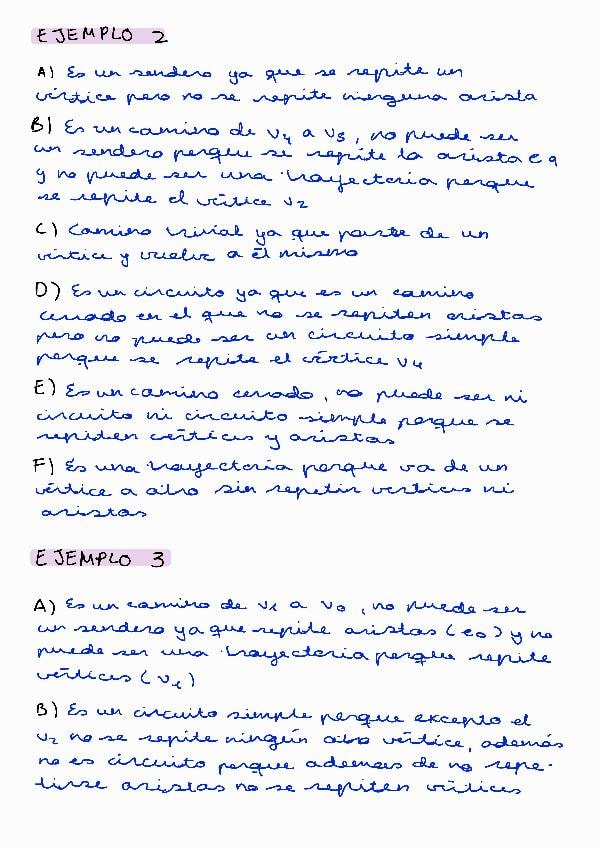 EJEMPLO 2
A) Es un sendero ya que se repite un
vértice pero no se repite ninguna arista
B) Es un camino de v4 a v3, no puede ser
un sendero porque si repite la arista e9
y no puede ser una trayectoria porque
se repite el vértice v2
C) Camino trivial ya que parte de un
vértice y vuelve a él mismo
D) Es un circuito ya que es un camino
cerrado en el que no se repiten aristas
pero no puede ser un circuito simple
porque se repite el vértice v4
E) Es un camino cerrado, no puede ser ni
circuito ni circuito simple porque se
repiten vérticis y aristas
F) Es una trayectoria porque va de un
vértice a otro sin repetir vertices ni
aristas
EJEMPLO 3
A) Es un camino de v1 a v0, no puede ser
un sendero ya que repite aristas (e0) y no
puede ser una trayectoria porque repite
vértices (v1)
B) Es un circuito simple porque excepto el
v2 no se repite ningún otro vértice, además
no es circuito porque ademaes de no repe-
tirse aristas no se repiten vértices